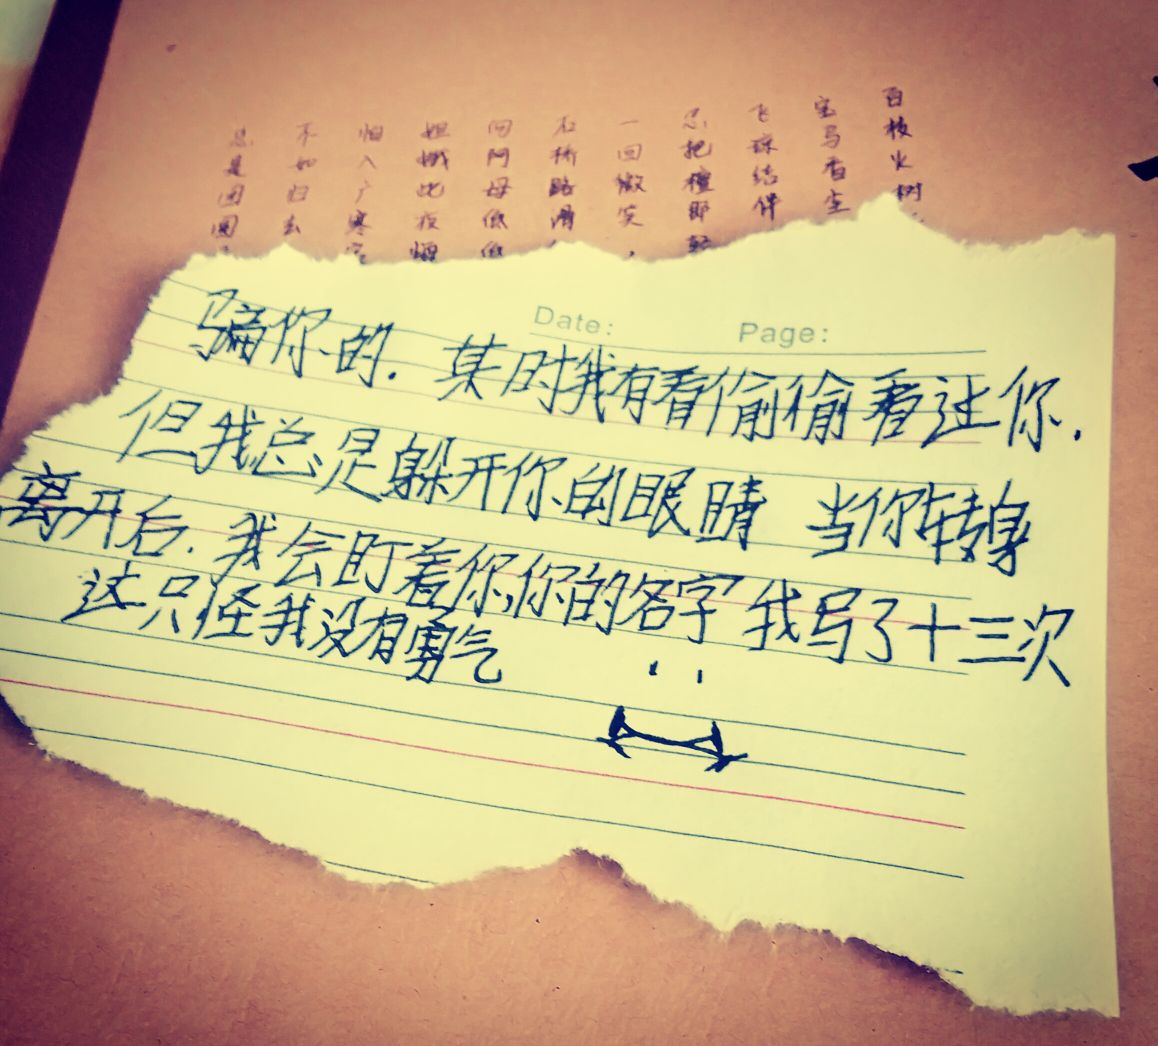 百枝火树
宝马香尘
飞琼结伴
忍把檀郎轻
一回微笑，
石桥路滑
向阿母低低
姮娥此夜悔
怕入广寒宫
不如归去
总是团圆
Date: Page:
骗你的. 某时我有看偷偷看过你.
但我总是躲开你的眼睛 当你转身
离开后. 我会盯着你,你的名字 我写了十三次
这只怪我没有勇气